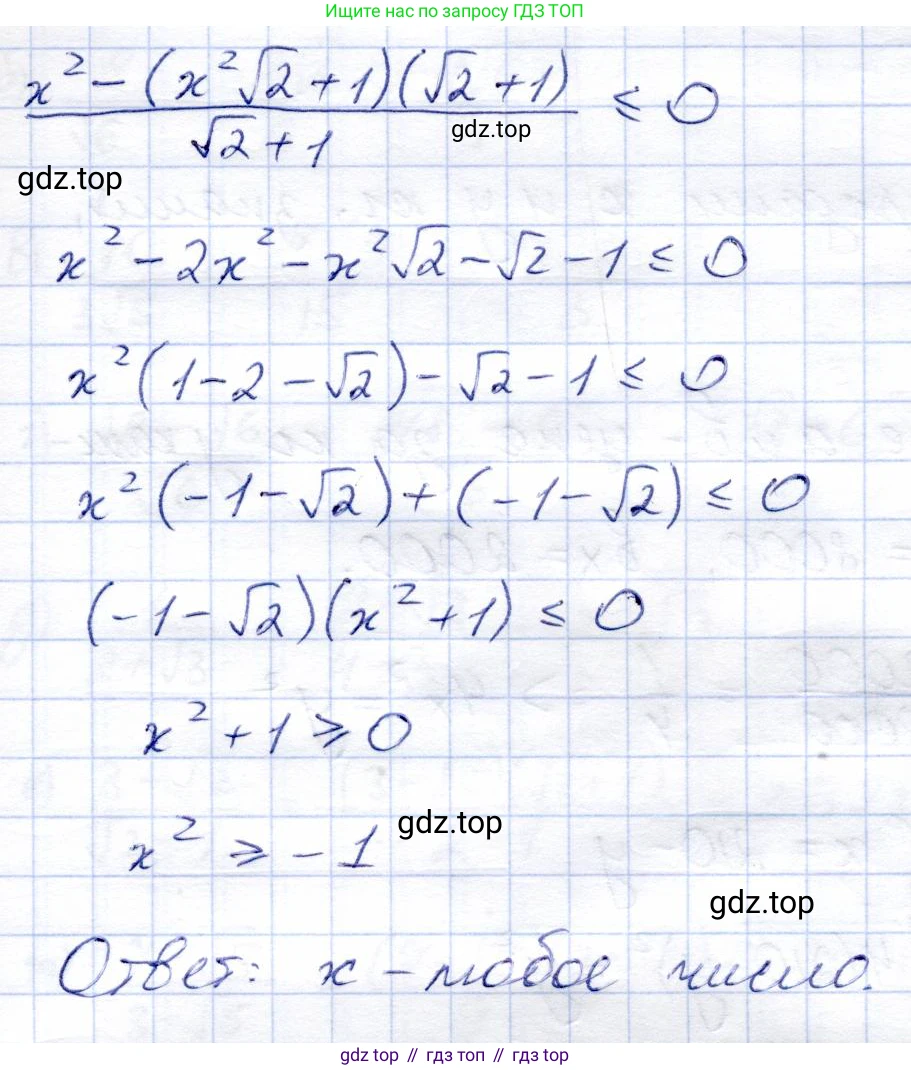 Ищите нас по запросу ГДЗ ТОП
x² − (x²√2 + 1)(√2 + 1) ≤ 0
√2 + 1
gdz.top
gdz.top
x² − 2x² − x²√2 − √2 − 1 ≤ 0
x²(1 − 2 − √2) − √2 − 1 ≤ 0
x²(−1 − √2) + (−1 − √2) ≤ 0
(−1 − √2)(x² + 1) ≤ 0
x² + 1 ⩾ 0
gdz.top
x² ⩾ −1
gdz.top
Ответ: x − любое число.
gdz top // гдз топ // gdz top